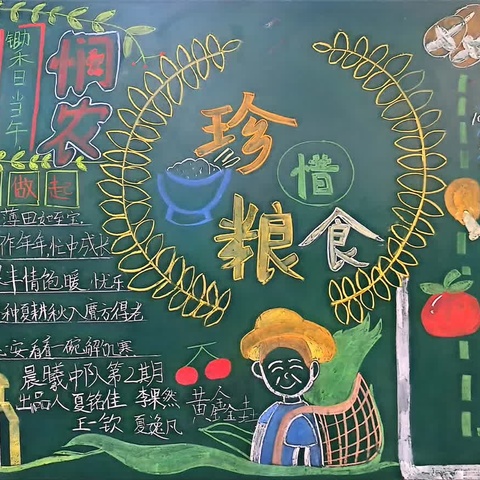 悯农
锄禾日当午
做起
珍惜粮食
薄田如至宝
作年年忙中成长
丰情饱暖,忧乐
种夏耕秋入魔方得老
安看看一碗解饥寒
晨曦中队第2期
出品人夏铭佳 李果然 黄金
王一钦 夏逸凡